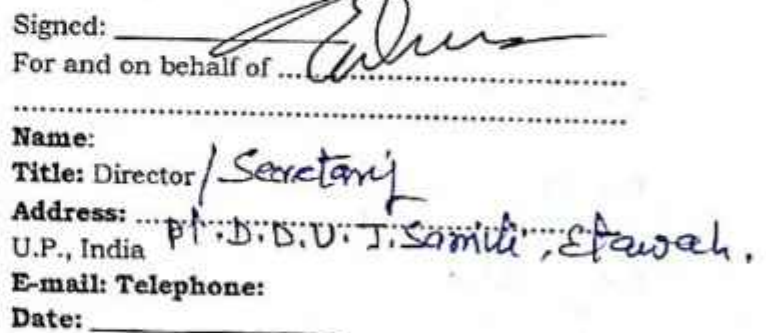 Signed:
For and on behalf of
Name:
Title: Director / Secretary
Address: Pt. D. D. U. J. Samiti, Etawah.
U.P., India
E-mail: Telephone:
Date: